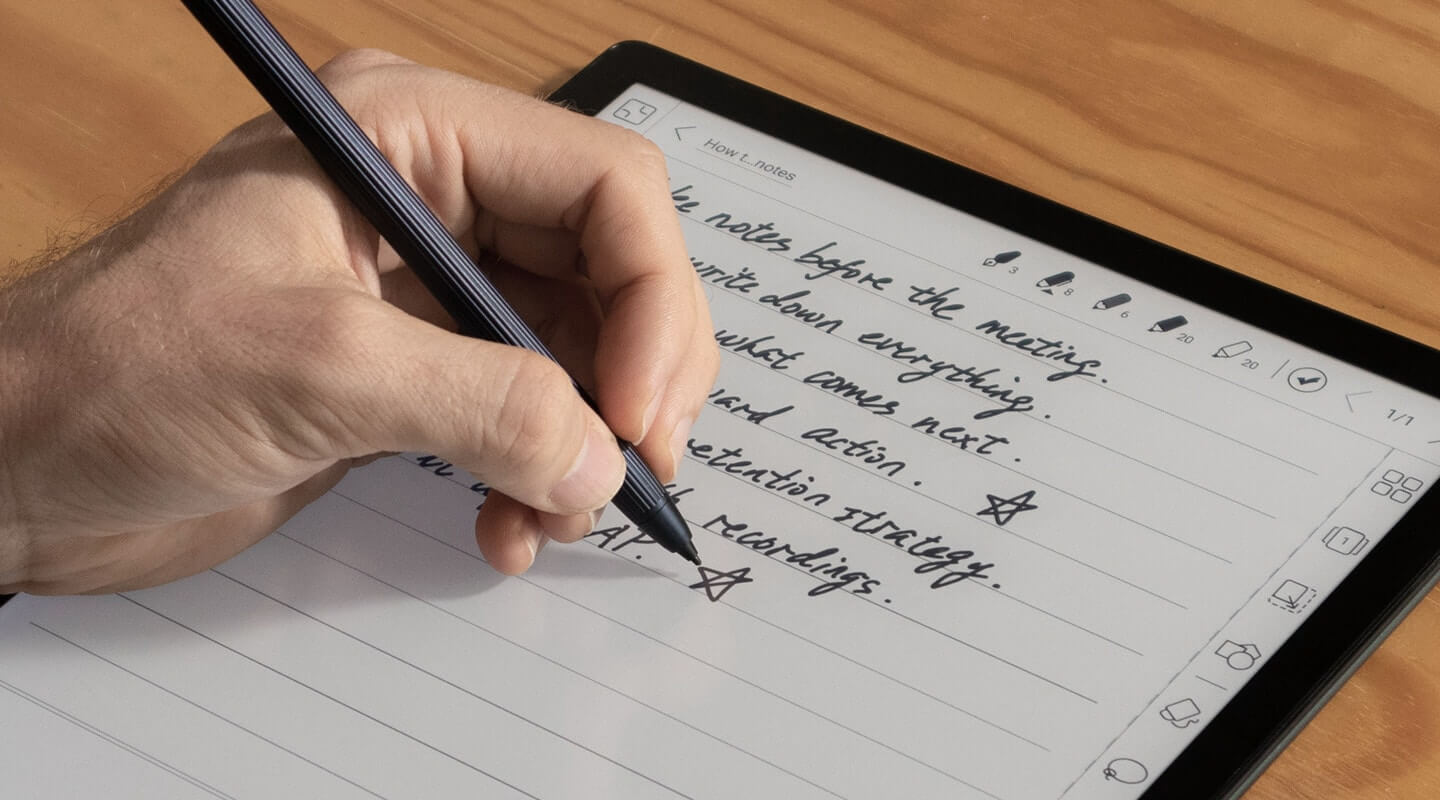 How t...notes
notes before the meeting.
write down everything.
what comes next.
action.
retention strategy.
recordings.
AP.
3
8
6
20
20
1/1
1